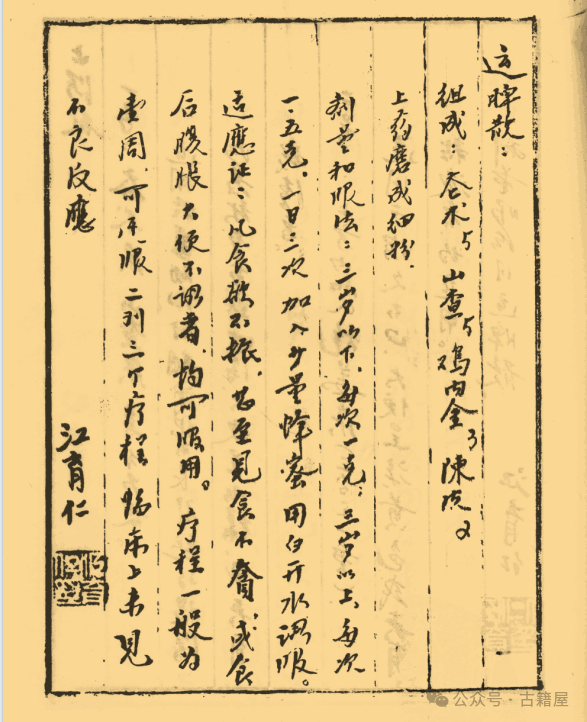 运脾散：
组成：苍术5 山查5 鸡内金3 陳皮2
上药磨成细粉.
剂量和服法：三岁以下，每次一克；三岁以上，每次
一.五克，一日三次 加入少量蜂蜜 用白开水调服。
适應证：凡食欲不振，甚至见食不奮，或食
后腹胀 大便不调者，均可服用。疗程一般为
壹周，可连服二到三个疗程 临床上未见
不良反應
江育仁
公众号 · 古籍屋